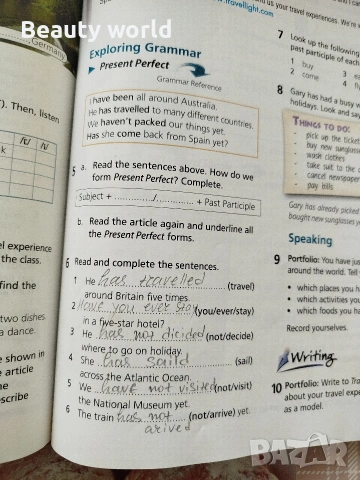 Beauty world
.travellight.com
us your travel experiences. We're
Germany
Exploring Grammar
Present Perfect
Grammar Reference
I have been all around Australia.
He has travelled to many different countries.
We haven't packed our things yet.
Has she come back from Spain yet?
5 a. Read the sentences above. How do we
form Present Perfect? Complete.
Subject + ............/............ + Past Participle
b. Read the article again and underline all
the Present Perfect forms.
6 Read and complete the sentences.
1 He has travelled (travel)
around Britain five times.
2 Have you ever stay (you/ever/stay)
in a five-star hotel?
3 He has not dicided (not/decide)
where to go on holiday.
4 She has saild (sail)
across the Atlantic Ocean.
5 We have not visited (not/visit)
the National Museum yet.
6 The train has not (not/arrive) yet.
arived
). Then, listen
/t/ /ɪ/
k
el experience
the class.
find the
two dishes.
a dance.
e shown in
e article
he
scribe
7 Look up the following
past participle of each
1 buy 3
2 come 4 fl
8 Gary has had a busy
holidays. Look and say
THINGS TO DO:
- pick up the ticket
- buy new sunglass
- wash clothes
- take suit to the
- cancel newspape
- pay bills
Gary has already picked
bought new sunglasses
Speaking
9 Portfolio: You have jus
around the world. Tell
• which places you h
• which activities you
• which foods you h
Record yourselves.
Writing
10 Portfolio: Write to Tra
about your travel expe
as a model.
BAZAR